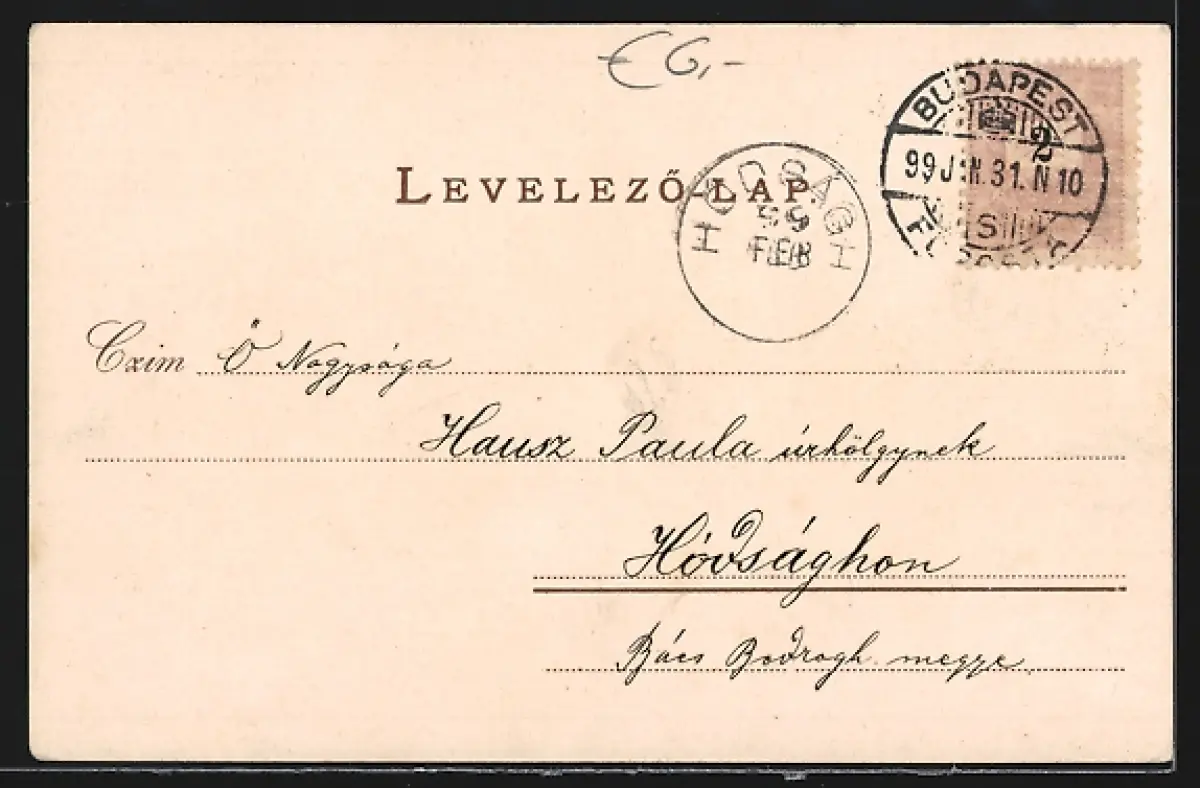 € 6,-
BUDAPEST
2
99 JAN. 31. N 10
LEVELEZŐ-LAP.
HÓDSÁGH
99
FEB
Czim Ő Nagysága
Hausz Paula úrhölgynek
Hódsághon
Bács Bodrogh megye